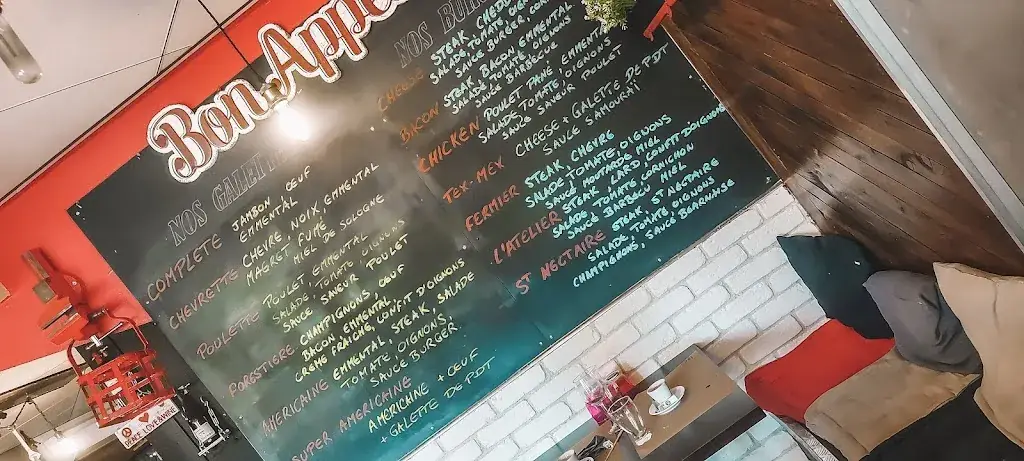 Bon Appe
NOS GALE
COMPLETE JAMBON OEUF
EMMENTAL
CHEVRETTE CHEVRE NOIX EMMENTAL
MAGRET FUME
MIEL DE SOLOGNE
POULETTE POULET EMMENTAL
SALADE TOMATE OIGNONS
SAUCE SAVEUR POULET
FORESTIERE CHAMPIGNONS, OEUF
BACON EMMENTAL
CREME FRAICHE, CONFIT D'OIGNONS
AMERICAINE EMMENTAL, STEAK, SALADE
TOMATE, OIGNONS
SAUCE BURGER
SUPER AMERICAINE
AMERICAINE + OEUF
+ GALETTE DE PDT
NOS BUR
CHEESE STEAK CHED
SALADE TOMATE
SAUCE BURGER, CON
BACON STEAK BACON EMMENTAL
SALADE, TOMATE, OIGNONS
SAUCE BARBECUE
CHICKEN POULET PANE EMMENTAL
SALADE, TOMATE, OIGNONS
SAUCE SAVEUR POULET
TEX-MEX CHEESE + GALETTE DE PDT
SAUCE SAMOURAI
FERMIER STEAK CHEVRE
SALADE TOMATE OIGNONS
SAUCE MOUTARDE MIEL
L'ATELIER STEAK, CARD, CONFIT D'OIGNONS
SALADE, TOMATE, CORNICHON
SAUCE BARBECU MIEL
ST NECTAIRE STEAK ST NECTAIRE
SALADE TOMATE OIGNONS
CHAMPIGNONS, SAUCE BEARNAISE